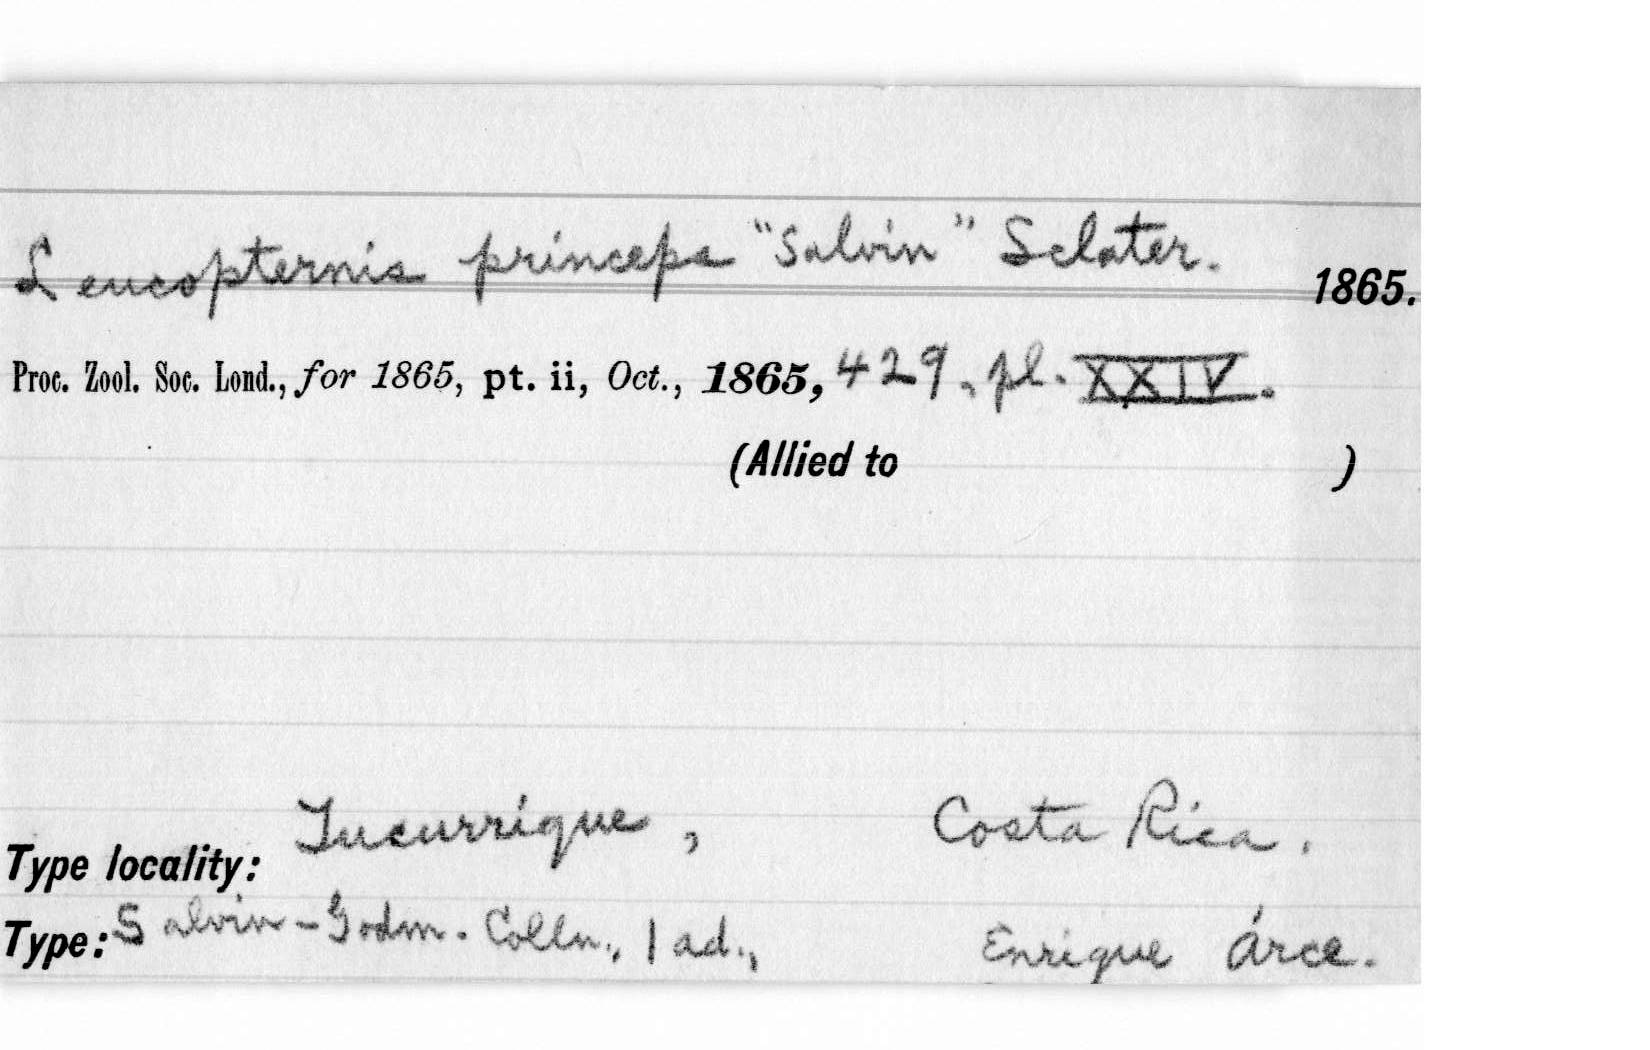 Leucopternis princeps "Salvin" Sclater. 1865.
Proc. Zool. Soc. Lond., for 1865, pt. ii, Oct., 1865, 429, pl. XXIV.
(Allied to )
Type locality: Tucurrique, Costa Rica.
Type: Salvin-Godm. Colln., 1 ad., Enrique Árce.